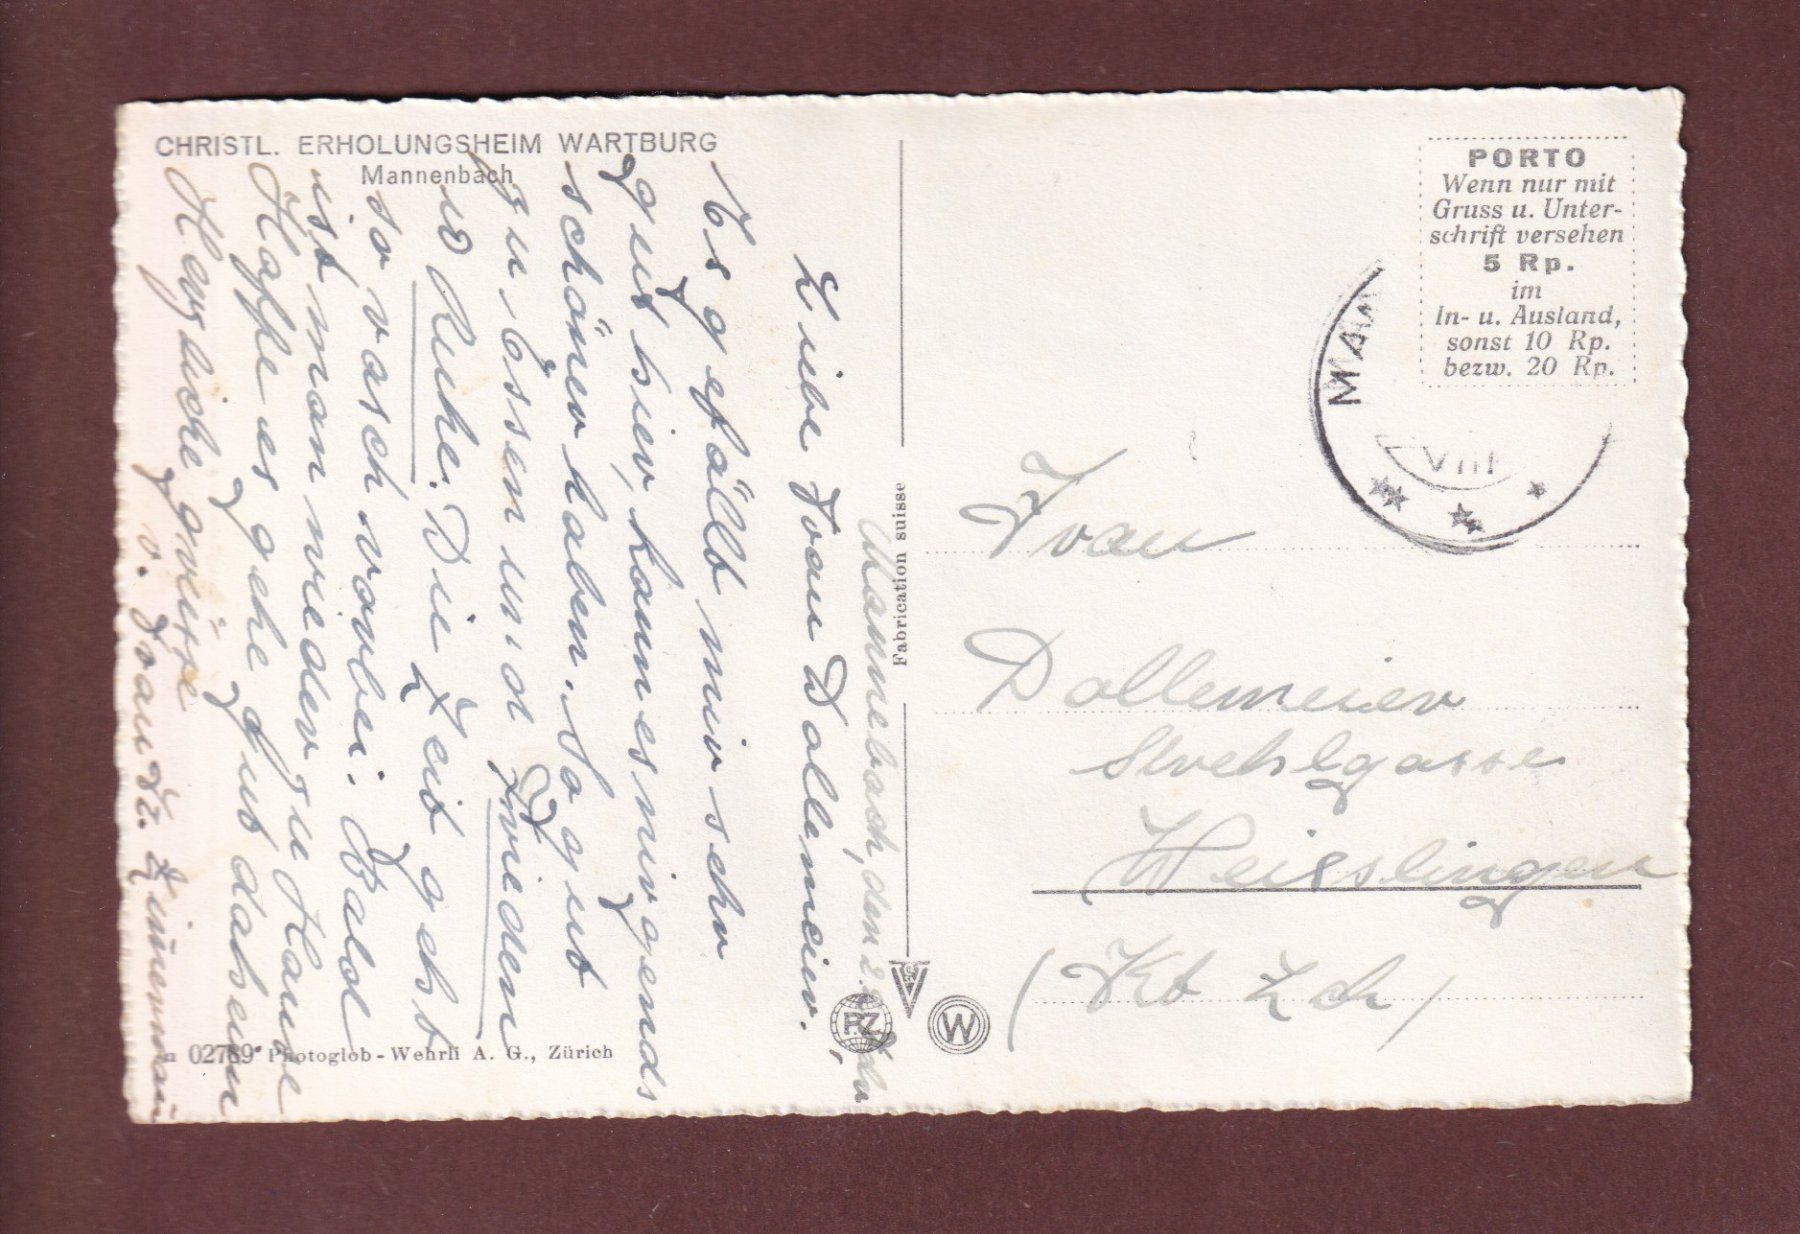 CHRISTL. ERHOLUNGSHEIM WARTBURG
Mannenbach
Mannenbach, den 2.
Liebe Frau Dallemeier,
Es gefällt mir sehr
gut hier, kann es nirgends
schöner haben. So gut
zu Essen und Frieden
u Ruhe. Die Zeit geht
so rasch vorbei. Bald
ist man wieder zu Hause
Hoffe es gehe gut daheim
Herzliche grüsse
v. Frau
Zimmermann
02789 Photoglob-Wehrli A. G., Zürich
Fabrication suisse
PZ
W
PORTO
Wenn nur mit
Gruss u. Unter-
schrift versehen
5 Rp.
im
In- u. Ausland,
sonst 10 Rp.
bezw. 20 Rp.
MAN
VIII
Frau
Dallemeier
Strehlgasse
Weisslingen
(Kt Zch)